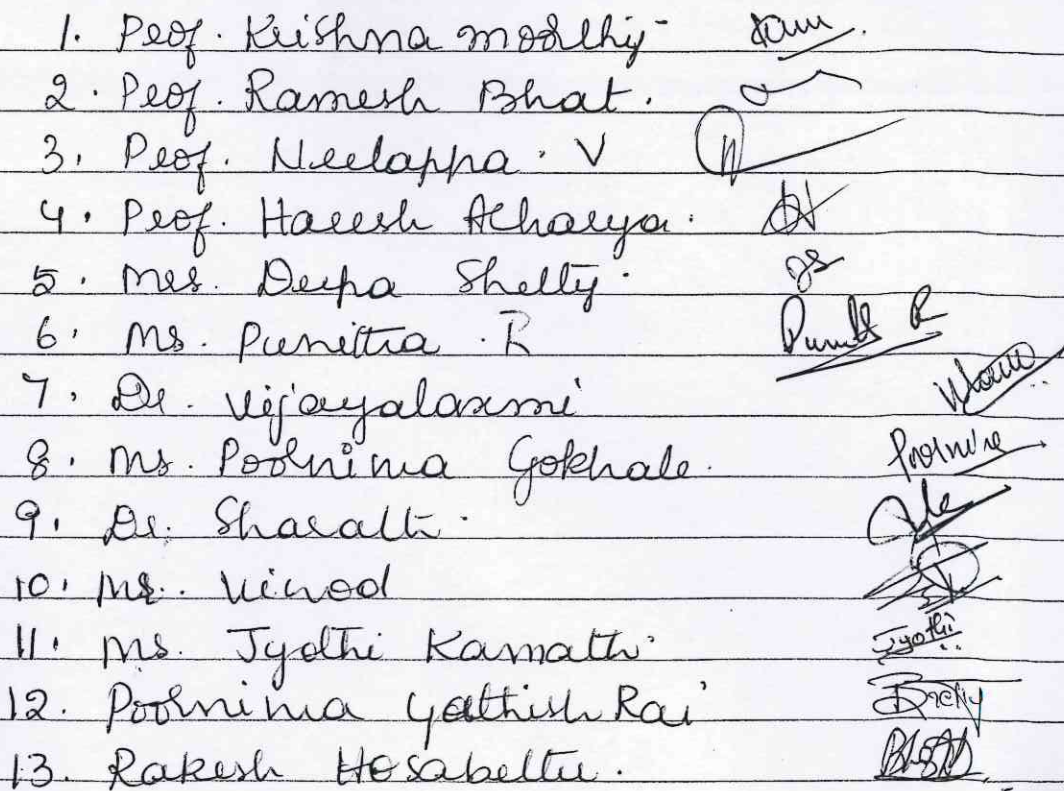 1. Prof. Krishna moorthy
2. Prof. Ramesh Bhat.
3. Prof. Neelappa. V
4. Prof. Haresh Acharya.
5. Mrs. Deepa Shetty.
6. Ms. Punitha. R
7. Dr. Vijayalaxmi
8. Ms. Poornima Gokhale. Poornima
9. Dr. Sharath.
10. Mr. Vinod
11. Ms. Jyothi Kamath. Jyothi
12. Poornima Yathish Rai
13. Rakesh Hosabettu.